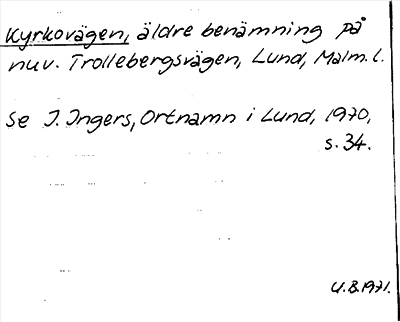 Kyrkovägen, äldre benämning på
nuv. Trollebergsvägen, Lund, Malm. l.
Se I. Ingers, Ortnamn i Lund, 1970,
s. 34.
U.B. 1971.